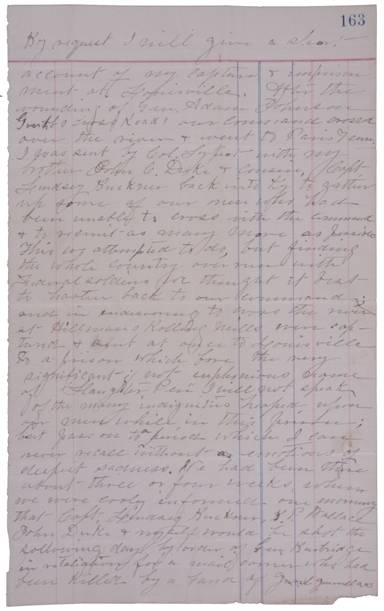 163
By request I will give a short
account of my capture & imprison
ment at Louisville. After the
wounding of Gen. Adam Johnson
Grubbs Cross Roads our command crossed
over the river & went to Paris Tenn.
I was sent by Col. with my
brother John C. Duke & cousin, Capt
Lindsey Buckner back into Ky to gather
up some of our men who had
been unable to cross with the command
& to recruit as many more as possible
This we attempted to do, but finding
the whole country overrun with
Federal soldiers we thought it best
to hasten back to our command;
and in endeavoring to cross the river
at Hillman's Rolling Mills were cap-
tured & sent at once to Louisville
to a prison which bore the very
significant if not euphonious name
of Slaughter Pen. I will not speak
of the many indignities heaped upon
our men while in this prison;
but pass on to a period which I can
never recall without emotions of
deepest sadness. We had been there
about three or four weeks, when
we were cooly informed one morning
that Capt. Lindsey Buckner, Wallace
John Duke & myself would be shot the
following day by order of Gen Burbridge
in retaliation for a mail carrier who had
been killed by a band of guerrillas